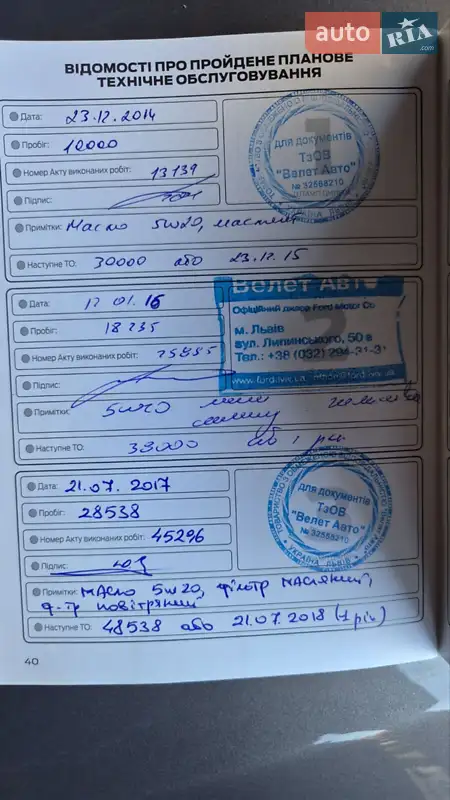 auto RIA .com
ВІДОМОСТІ ПРО ПРОЙДЕНЕ ПЛАНОВЕ
ТЕХНІЧНЕ ОБСЛУГОВУВАННЯ
Дата: 23.12.2014
Пробіг: 10000
Номер Акту виконаних робіт: 13139
Підпис:
1
для документів
ТзОВ
"Велет Авто"
№ 32568210
УКРАЇНА
Примітки: Масло 5w20,
Наступне ТО: 30000 або 23.12.15
Дата: 12 01.16
Пробіг: 18235
Номер Акту виконаних робіт:
Підпис:
Велет Авто
2
Офіційний дилер Ford Motor Co
м. Львів
вул. Липинського, 50 в
Тел.: +38 (032) 294-31-31
Примітки: 5w20
Наступне ТО: 38000 або 1 рік
Дата: 21.07.2017
Пробіг: 28538
Номер Акту виконаних робіт: 45296
Підпис:
ТОВАРИСТВО З ОБМЕЖЕНОЮ
для документів
ТзОВ
"Велет Авто"
№ 32568210
УКРАЇНА
Примітки: масло 5w20, фільтр масляний,
ф-тр повітряний
Наступне ТО: 48538 або 21.07.2018 (1 рік)
40